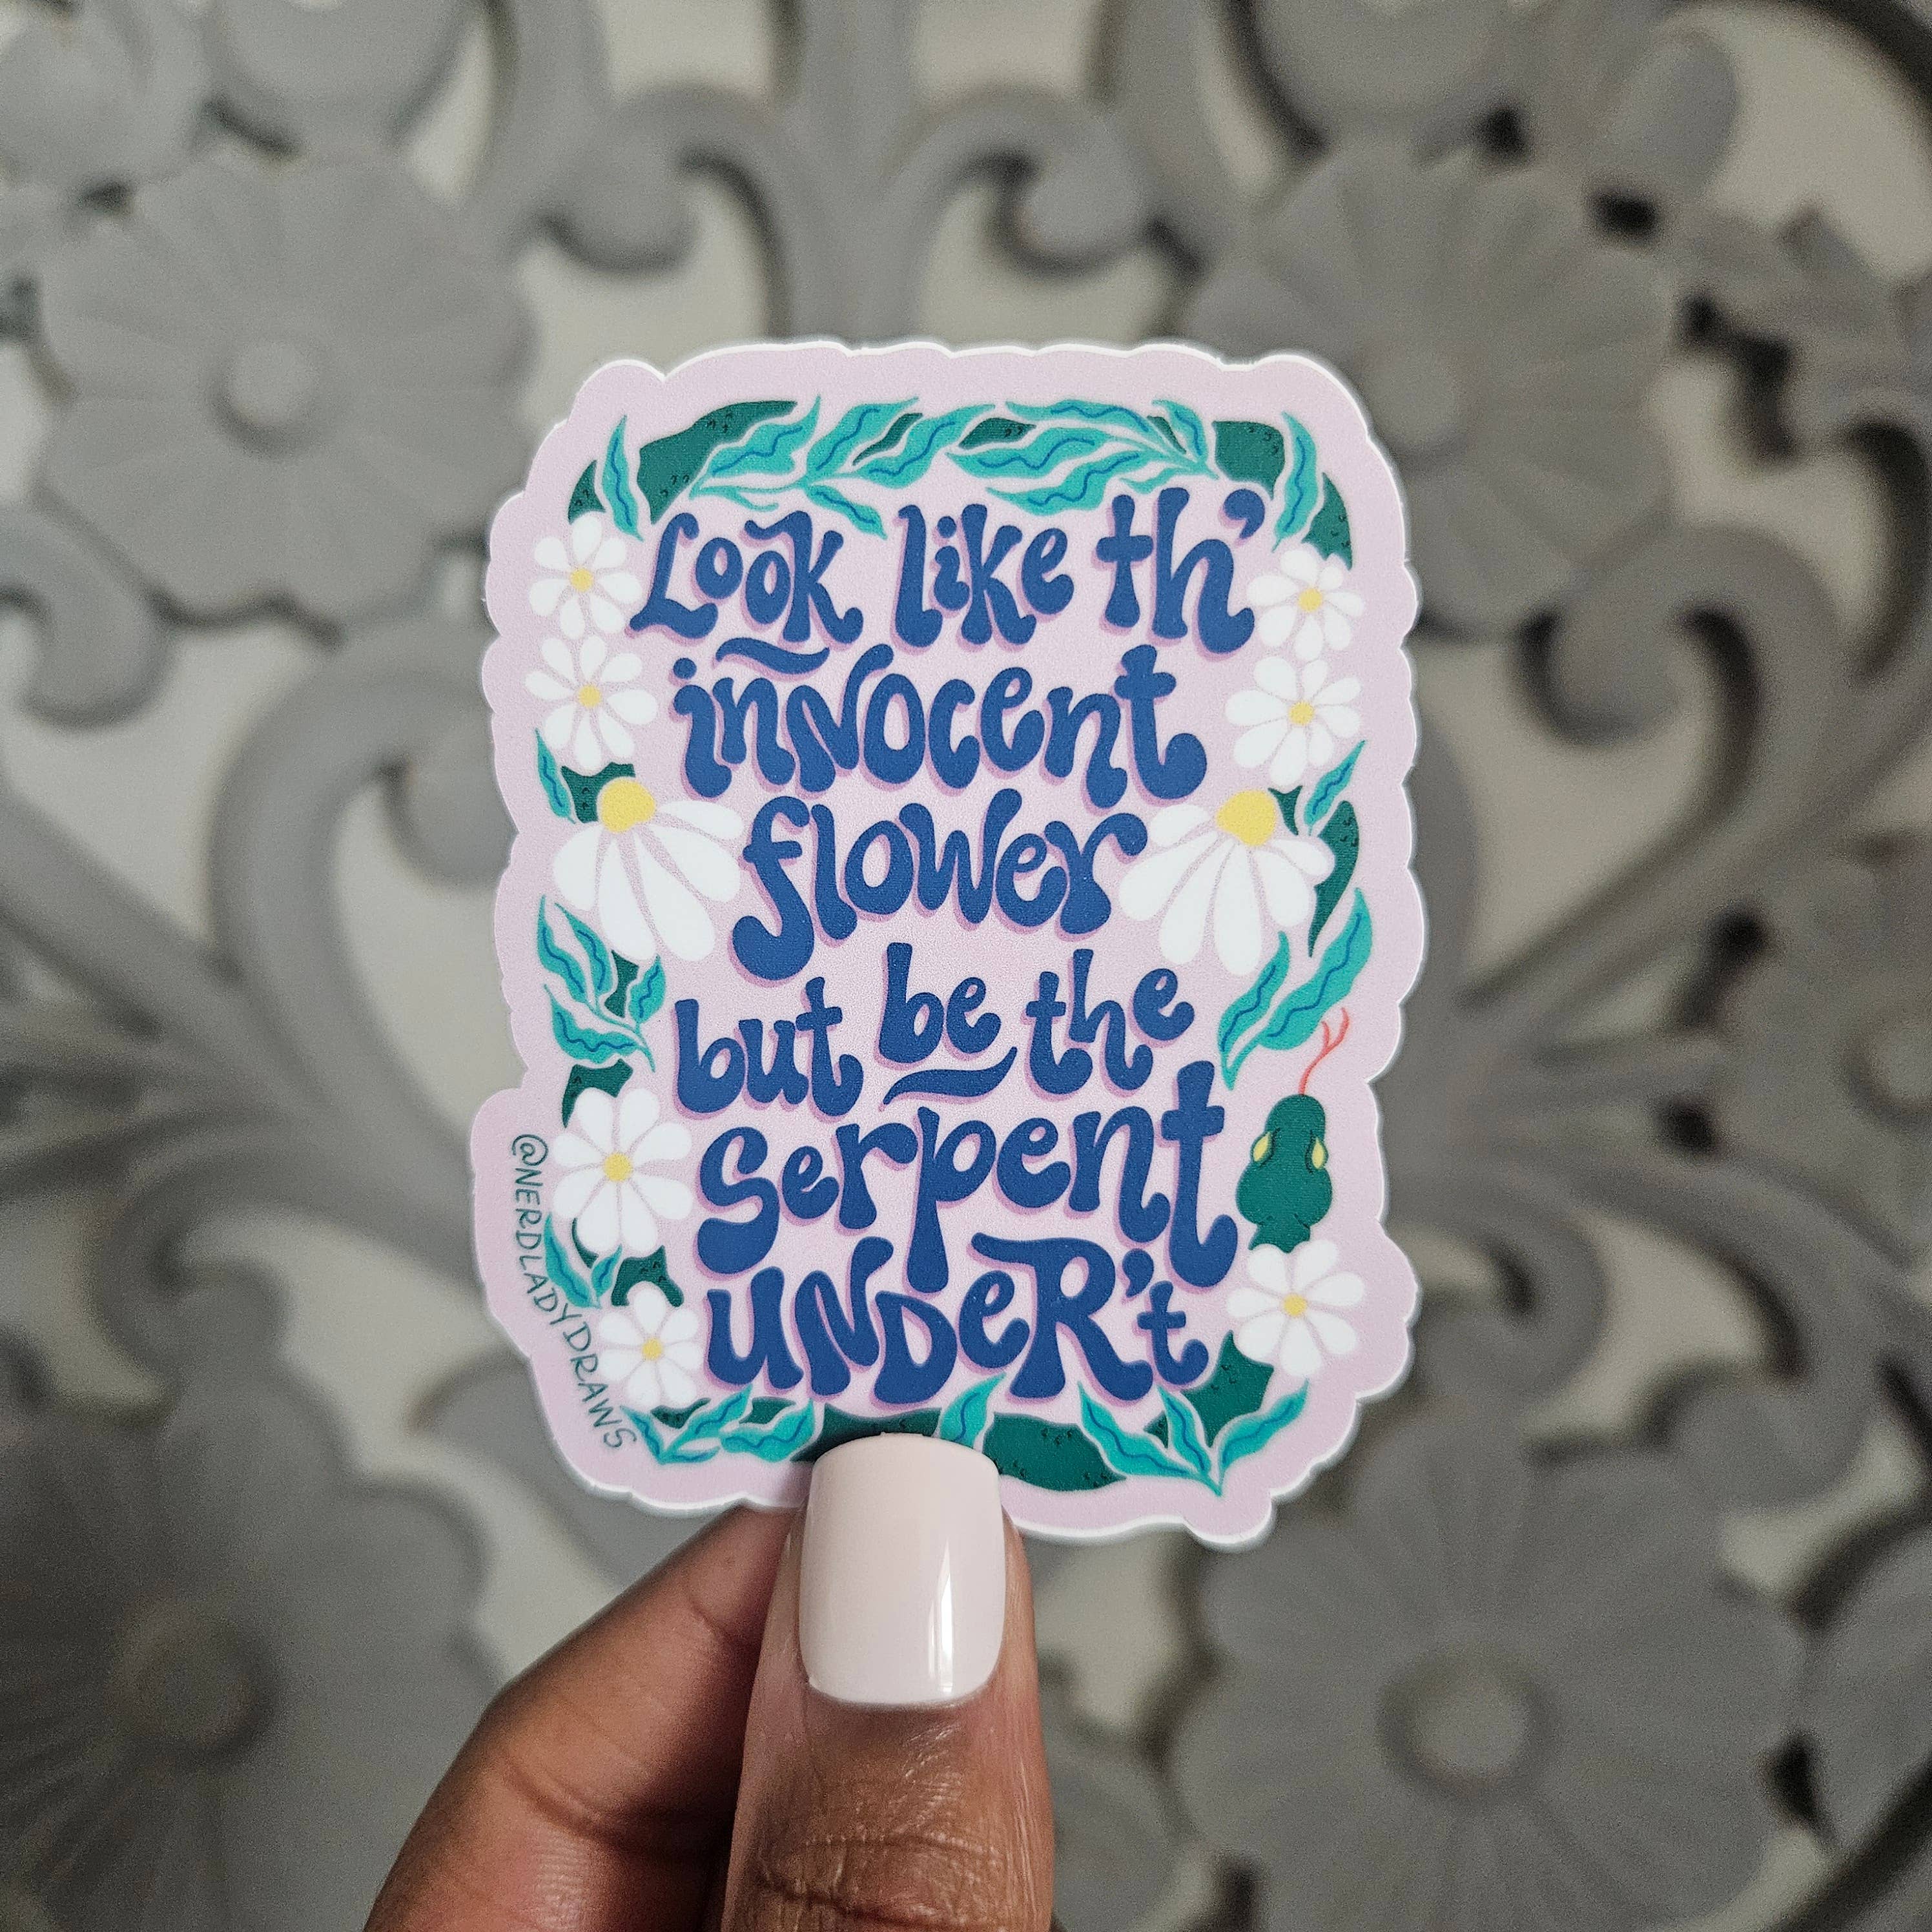 Look like th'
innocent
flower
but be the
serpent
UNDeR't
@NERDLADYDRAWS